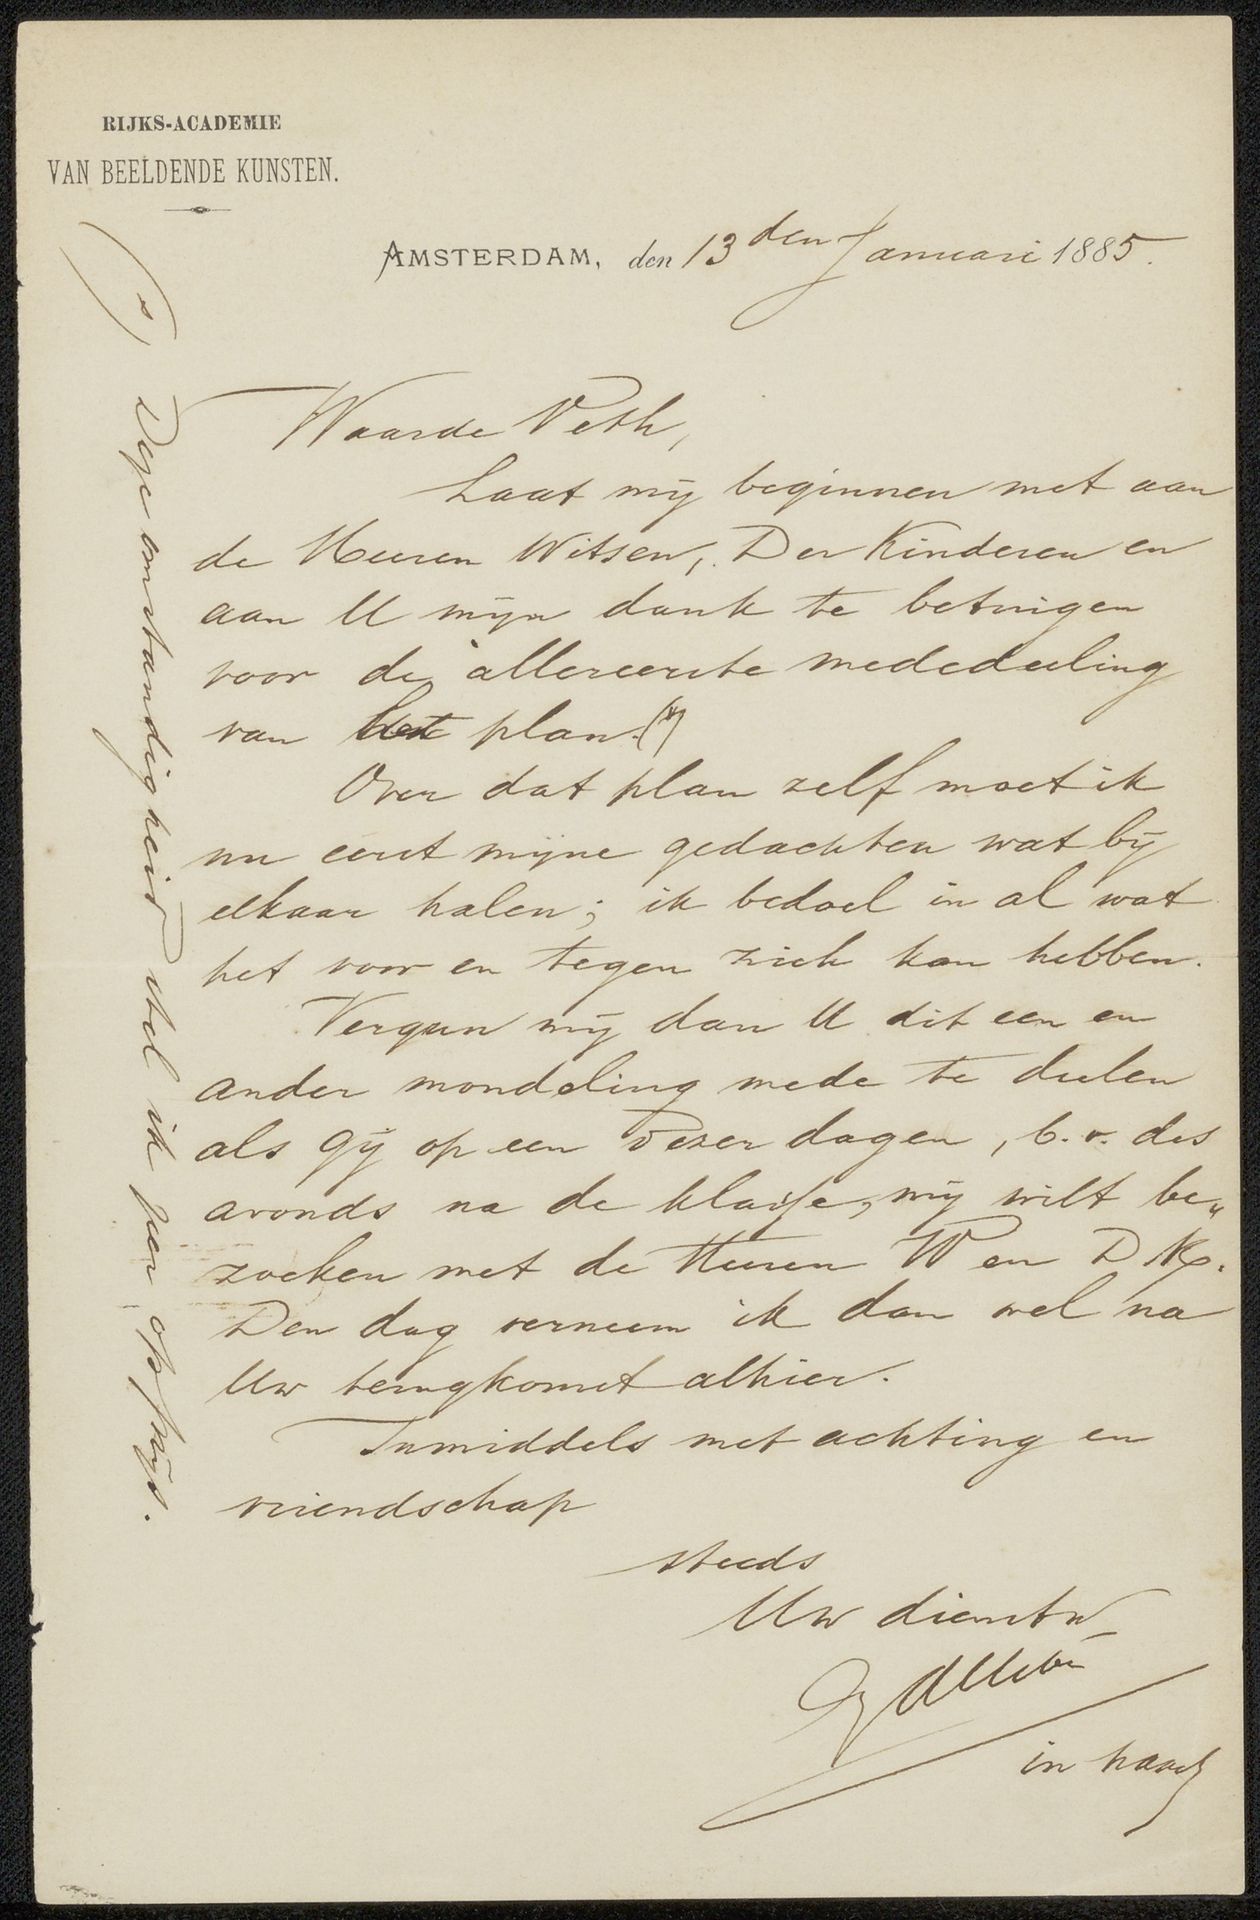 RIJKS-ACADEMIE
VAN BEELDENDE KUNSTEN.
AMSTERDAM, den 13 den Januari 1885.
Waarde Veth,
Laat mij beginnen met aan
de Heeren Witsen, Der Kinderen en
aan U mijn dank te betuigen
voor de allereerste mededeeling
van het plan. (*)
Over dat plan zelf moet ik
nu eerst mijne gedachten wat bij
elkaar halen; ik bedoel in al wat
het voor en tegen zich kan hebben.
Vergun mij dan U dit een en
ander mondeling mede te deelen
als gij op een dezer dagen, b.v. des
avonds na de klasse, mij wilt be„
zoeken met de Heeren W en D K.
Den dag verneem ik dan wel na
Uw terugkomst alhier.
Inmiddels met achting en
vriendschap
steeds
Uw dienstw
Allebé
in haast
(*) Deze omstandigheid stel ik zeer op prijs.